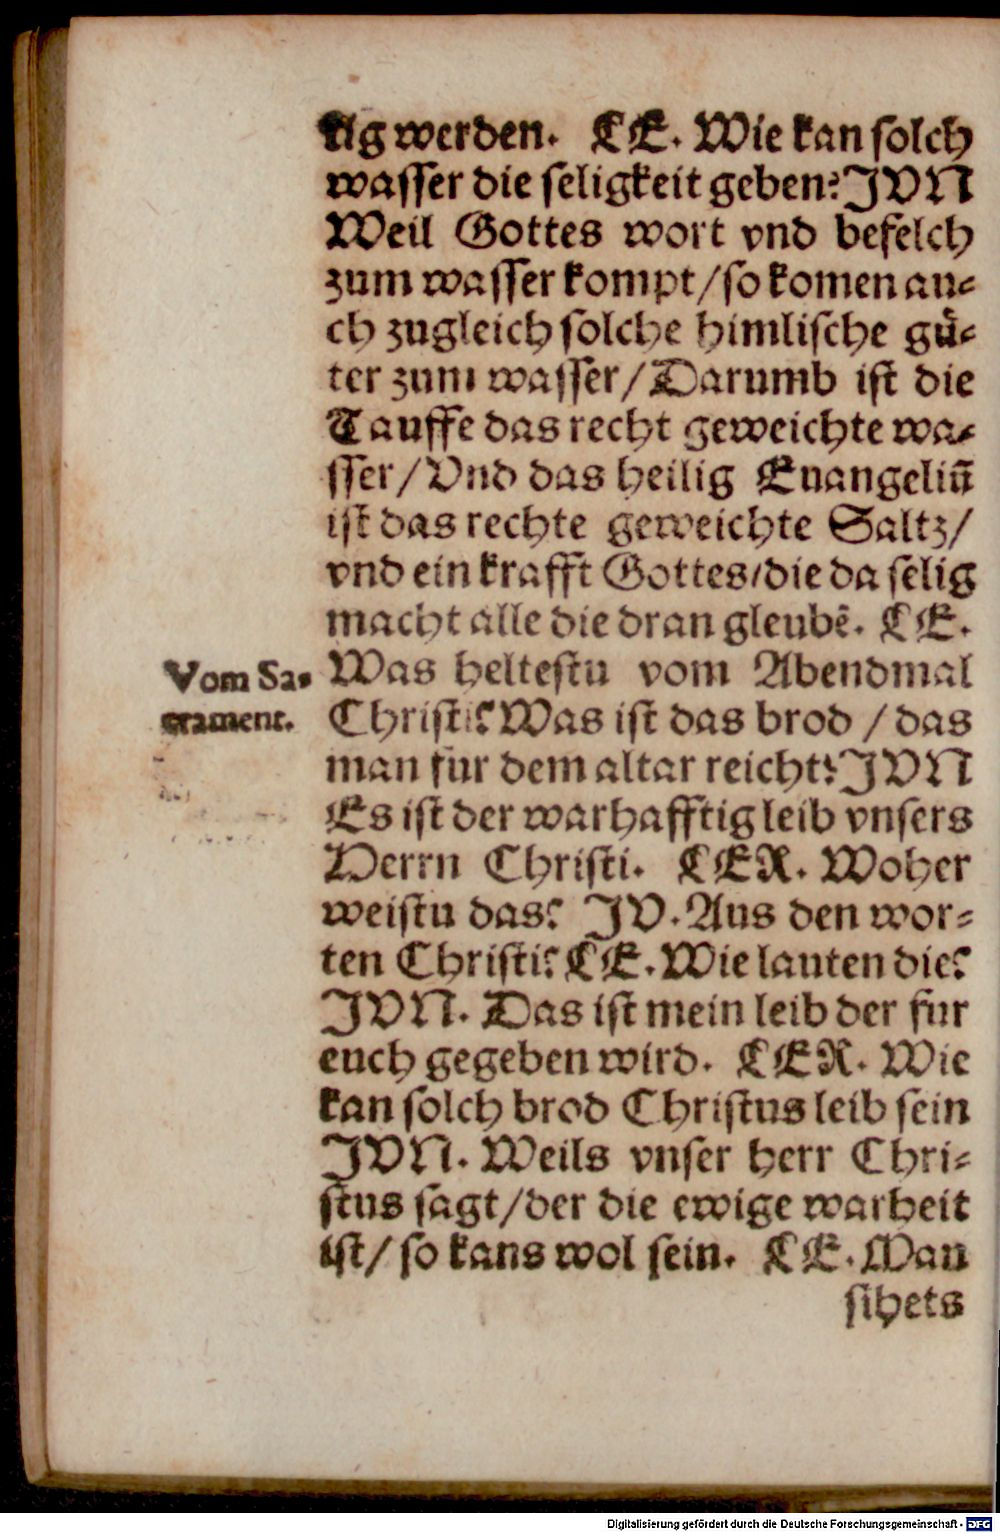 tig werden. CE. Wie kan solch
wasser die seligkeit geben? JVN
Weil Gottes wort vnd befelch
zum wasser kompt/so komen au-
ch zugleich solche himlische guͤ-
ter zum wasser/Darumb ist die
Tauffe das recht geweichte wa-
sser/Vnd das heilig Euangeliū
ist das rechte geweichte Saltz/
vnd ein krafft Gottes/die da selig
macht alle die dran gleubē. CE.
Vom Sa-
crament.
Was heltestu vom Abendmal
Christi? Was ist das brod / das
man fur dem altar reicht? JVN
Es ist der warhafftig leib vnsers
Herrn Christi. CER. Woher
weistu das? JV. Aus den wor-
ten Christi? CE. Wie lauten die?
JVN. Das ist mein leib der fur
euch gegeben wird. CER. Wie
kan solch brod Christus leib sein
JVN. Weils vnser herr Chri-
stus sagt/der die ewige warheit
ist/ so kans wol sein. CE. Man
sihets
Digitalisierung gefördert durch die Deutsche Forschungsgemeinschaft - DFG